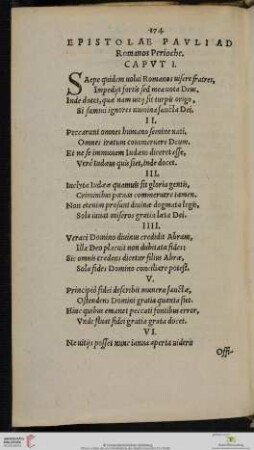 174
EPISTOLAE PAVLI AD
Romanos Periochæ.
CAPVT I.
SAepe quidem uolui Romanos uisere fratres,
Impedijt fortis sed mea uota Deus.
Inde docet, quæ nam uitij sit turpis origo,
Si summi ignores munera sancta Dei.
II.
Peccarunt omnes humano semine nati,
Omnes iratum commeruere Deum.
Et ne se immunem Iudæus diceret esse,
Vere Iudæus quis siet, inde docet.
III.
Inclyta Iudææ quamuis sit gloria gentis,
Criminibus pœnas commeruere tamen.
Non etenim prosunt diuinæ dogmata legis,
Sola iuuat miseros gratia lata Dei.
IIII.
Veraci Domino diuinus credidit Abram,
Illa Deo placuit non dubitata fides
Sic omnis credens dicetur filius Abræ,
Sola fides Domino conciliare potest.
V.
Principiò fidei describit munera sanctæ,
Ostendens Domini gratia quanta siet.
Hinc quibus emanet peccati fontibus error,
Vnde fluat fidei gratia grata docet.
VI.
Ne uitijs posset nunc ianua aperta uideri
Offi-